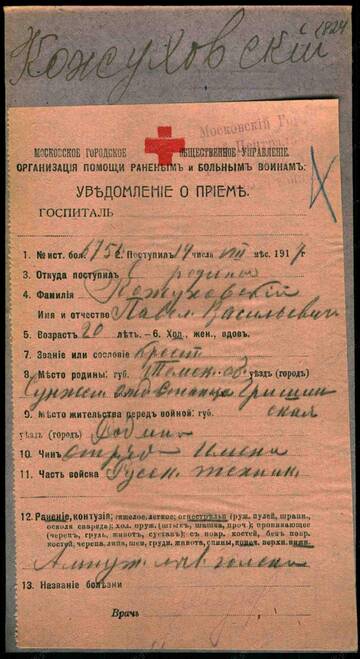 Кожуховскій
1824
Московскій Гор
МОСКОВСКОЕ ГОРОДСКОЕ ОБЩЕСТВЕННОЕ УПРАВЛЕНІЕ.
ОРГАНИЗАЦІЯ ПОМОЩИ РАНЕНЫМЪ и БОЛЬНЫМЪ ВОИНАМЪ:
УВѢДОМЛЕНІЕ О ПРІЕМѢ.
ГОСПИТАЛЬ
1. № ист. бол. 6756 2. Поступилъ 14 числа VIII мѣс. 191
3. Откуда поступилъ С родины
4. Фамилія Кожуховскій
Имя и отчество Павелъ Васильевич
5. Возрастъ 20 лѣтъ. - 6. Хол., жен., вдовъ.
7. Званіе или сословіе Крест
8. Мѣсто родины: губ. Томск. об. уѣздъ (городъ)
9. Мѣсто жительства передъ войной: губ.
уѣздъ (городъ) Родина
10. Чинъ
11. Часть войска
12. Раненіе, контузія: тяжелое, легкое; огнестрѣльн (руж. пулей, шрапн.,
осколк снаряда; хол. оруж. (штыкъ, шашка, проч.); проникающее
(черепъ, грудь, животъ, суставъ); съ повр. костей, безъ повр.
костей, черепа, лица, шеи, груди, живота, спины, конеч. верхн. нижн.
Ампут. лѣв голени
13. Названіе болѣзни
Врачъ